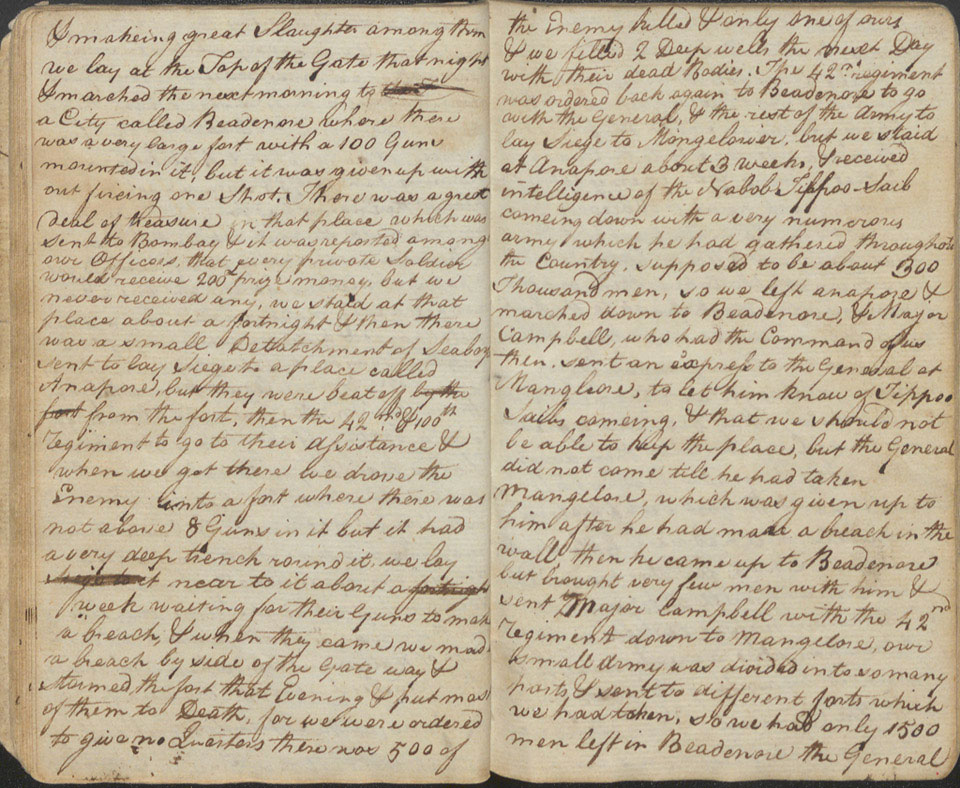 & makeing great Slaughter among them
we lay at the Top of the Gate that night
& marched the next morning to
a City called Beadenore where there
was a very large fort with a 100 Guns
mounted in it, but it was given up with
out fireing one Shot. There was a great
deal of treasure in that place which was
sent to Bombay & it was reported among
our Officers, that every private Soldier
would receive 200 prize money, but we
never received any, we staid at that
place about a fortnight & then there
was a small Detatchment of Seaboys
sent to lay Siege to a place called
Anapore, but they were beat off by the
fort from the fort, then the 42nd & 100th
regiment to go to their assistance &
when we got there we drove the
Enemy into a fort where there was
not above 8 Guns in it but it had
a very deep trench round it, we lay
it near to it about a fortnight
week waiting for their Guns to make
a breach, & when they came we made
a breach by side of the Gate way &
stormed the fort that Evening & put most
of them to Death, for we were ordered
to give no Quarters there was 500 of
the Enemy killed & only one of ours
& we filled 2 Deep wells the next Day
with their dead Bodies. The 42nd regiment
was ordered back again to Beadenore to go
with the General, & the rest of the Army to
lay Siege to Mangelower, but we staid
at Anapore about 3 weeks, & received
intelligence of the Nabob Tippoo-Saib
comeing down with a very numerous
army which he had gathered throughout
the Country, supposed to be about 300
Thousand men, so we left anapore &
marched down to Beadenore, & Major
Campbell, who had the Command of us
then, sent an express to the General at
Manglore, to let him know of Tippoo
Saibs comeing, & that we should not
be able to keep the place, but the General
did not come till he had taken
Mangelore, which was given up to
him after he had made a breach in the
wall, then he came up to Beadenore
but brought very few men with him &
sent Major Campbell with the 42nd
regiment down to Mangelore, our
small army was divided into so many
parts & sent to different forts which
we had taken, so we had only 1500
men left in Beadenore the General